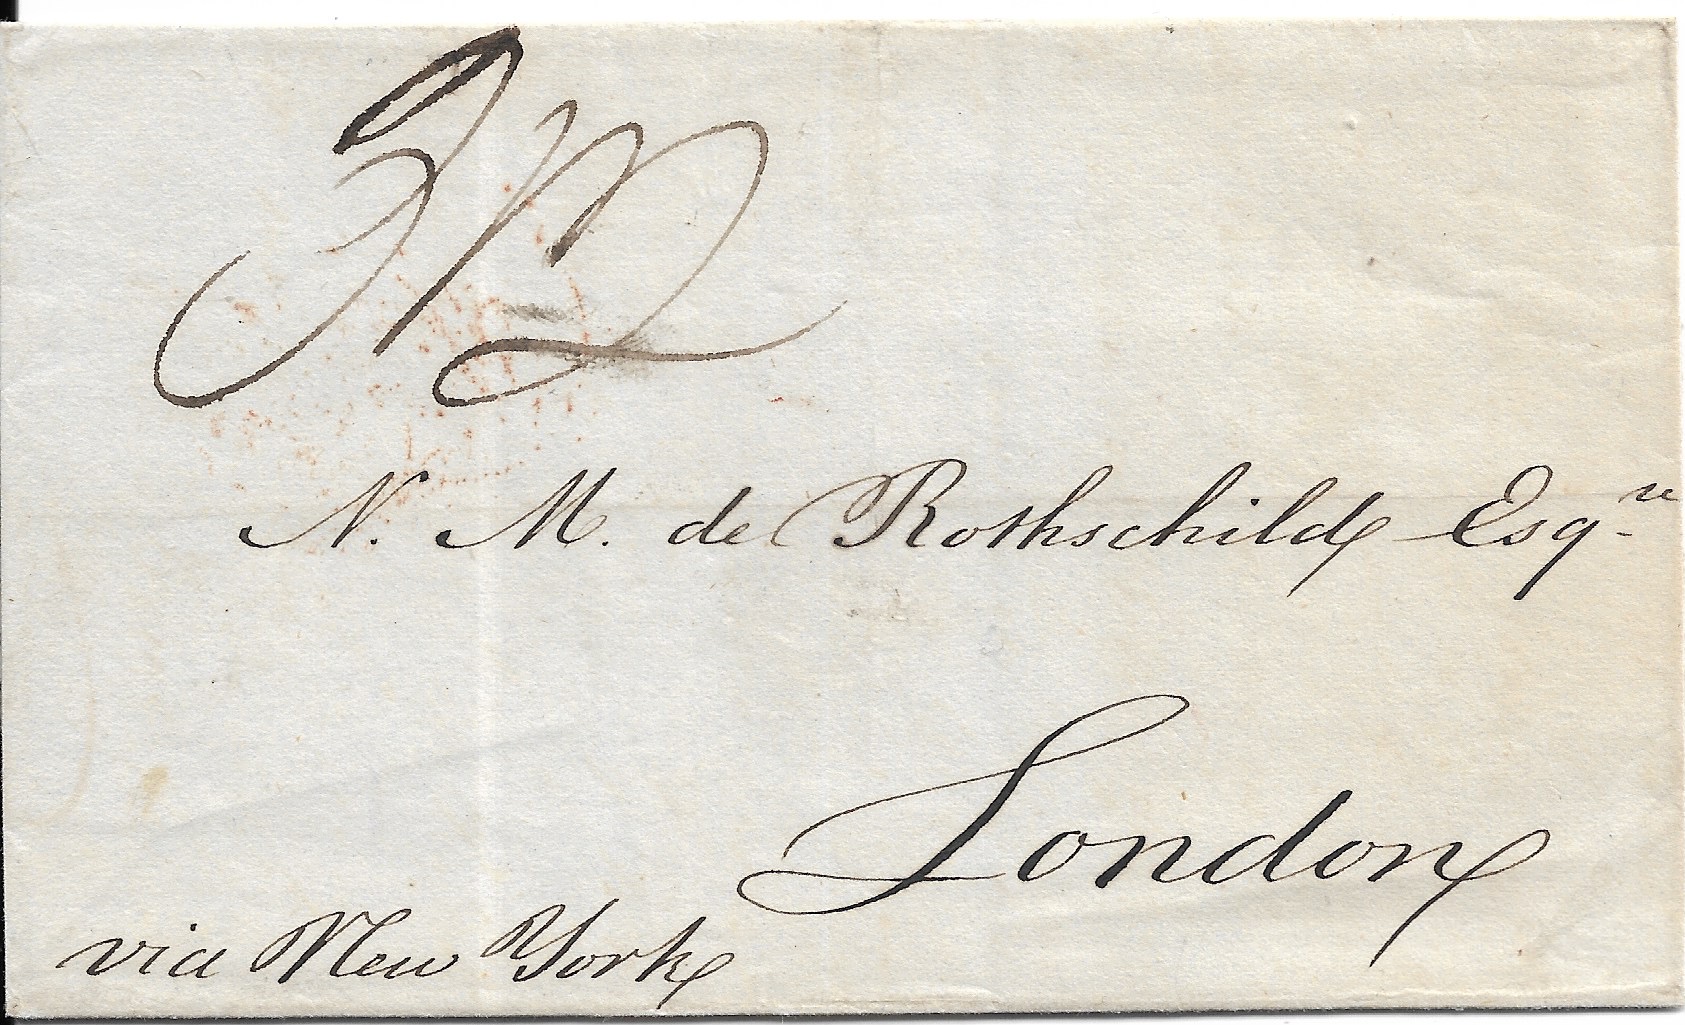 N. M. de Rothschild Esqre
London
via New York